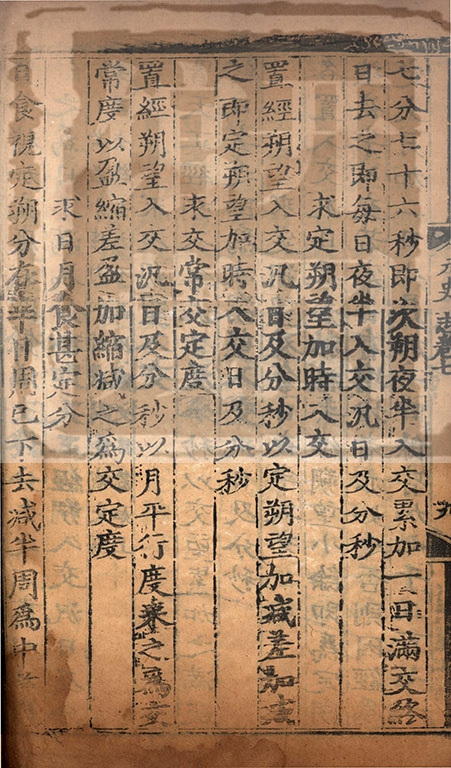 元史志卷七
九
七分七十六秒即次朔夜半入交累加一日滿交終
日去之即每日夜半入交汎日及分秒
求定朔望加時入交
置經朔望入交汎日及分秒以定朔望加減差加减
之即定朔望加時入交日及分秒
求交常交定度
置經朔望入交汎日及分秒以月平行度乘之爲交
常度以盈縮差盈加縮减之爲交定度
求日月食甚定分
日食視定朔分在半日周已下去减半周爲中